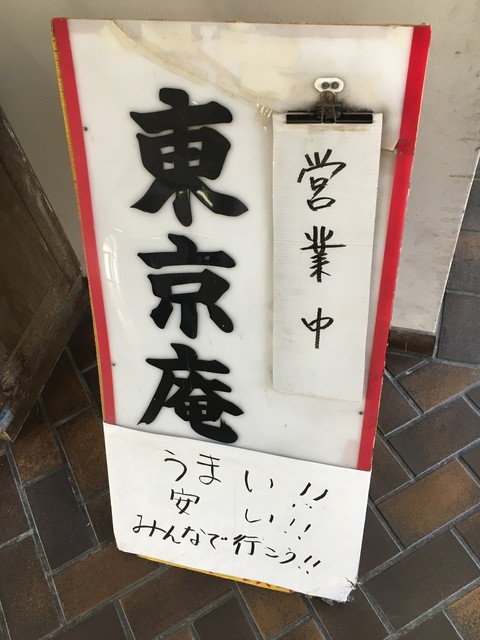 東京庵
営業中
うまい!!
安い!!!
みんなで行こう!!